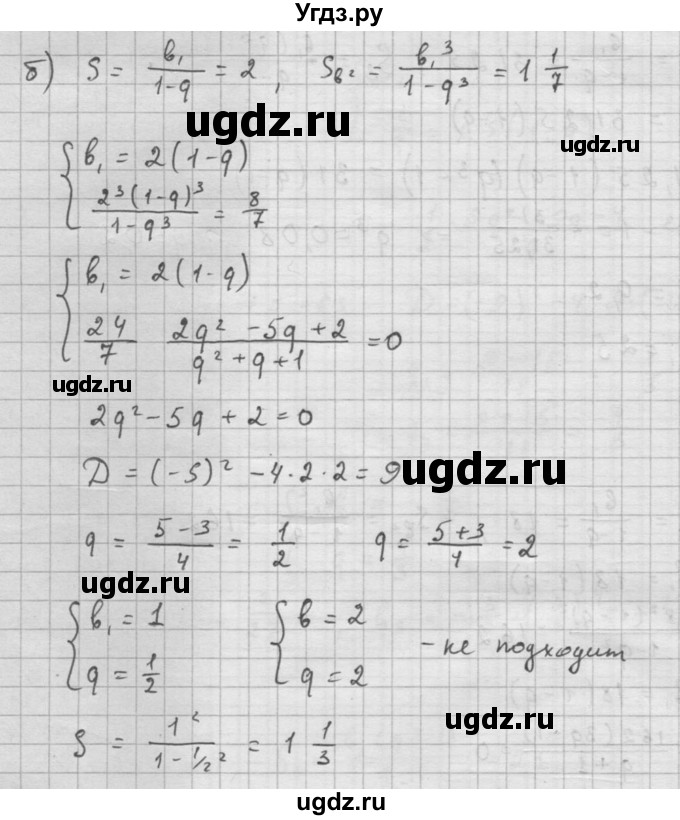 Угдз.ру
б) S = b₁/(1-q) = 2, S_b² = b₁³/(1-q³) = 1 1/7
ugdz.ru
ugdz.ru
{ b₁ = 2(1-q)
2³(1-q)³/(1-q³) = 8/7
{ b₁ = 2(1-q)
24/7 (2q² - 5q + 2)/(q² + q + 1) = 0
ugdz.ru
2q² - 5q + 2 = 0
D = (-5)² - 4·2·2 = 9
ugdz.ru
q = (5-3)/4 = 1/2 q = (5+3)/4 = 2
ugdz.ru
{ b₁ = 1 { b = 2
q = 1/2 q = 2 - не подходит
ugdz.ru
S = 1²/(1-1/2²) = 1 1/3
ugdz.ru
ugdz.ru